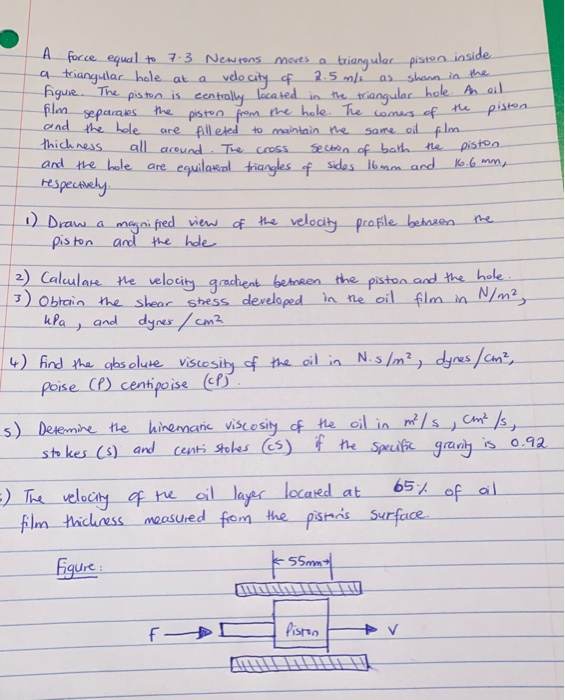 A force equal to 7.3 Newtons moves a triangular piston inside
a triangular hole at a velocity of 2.5 m/s as shown in the
figure. The piston is centrally located in the triangular hole. An oil
film separates the piston from the hole. The corners of the piston
and the hole are filleted to maintain the same oil film
thickness all around. The cross section of both the piston
and the hole are equilateral triangles of sides 16mm and 16.6 mm,
respectively.
1) Draw a magnified view of the velocity profile between the
piston and the hole
2) Calculate the velocity gradient between the piston and the hole.
3) Obtain the shear stress developed in the oil film in N/m²,
kPa, and dynes/cm²
4) Find the absolute viscosity of the oil in N.s/m², dynes/cm²,
poise (P) centipoise (cP).
5) Determine the kinematic viscosity of the oil in m²/s, cm²/s,
stokes (s) and centi stokes (cS) if the specific gravity is 0.92
) The velocity of the oil layer located at 65% of oil
film thickness measured from the piston's surface.
Figure:
55mm
F
Piston
V